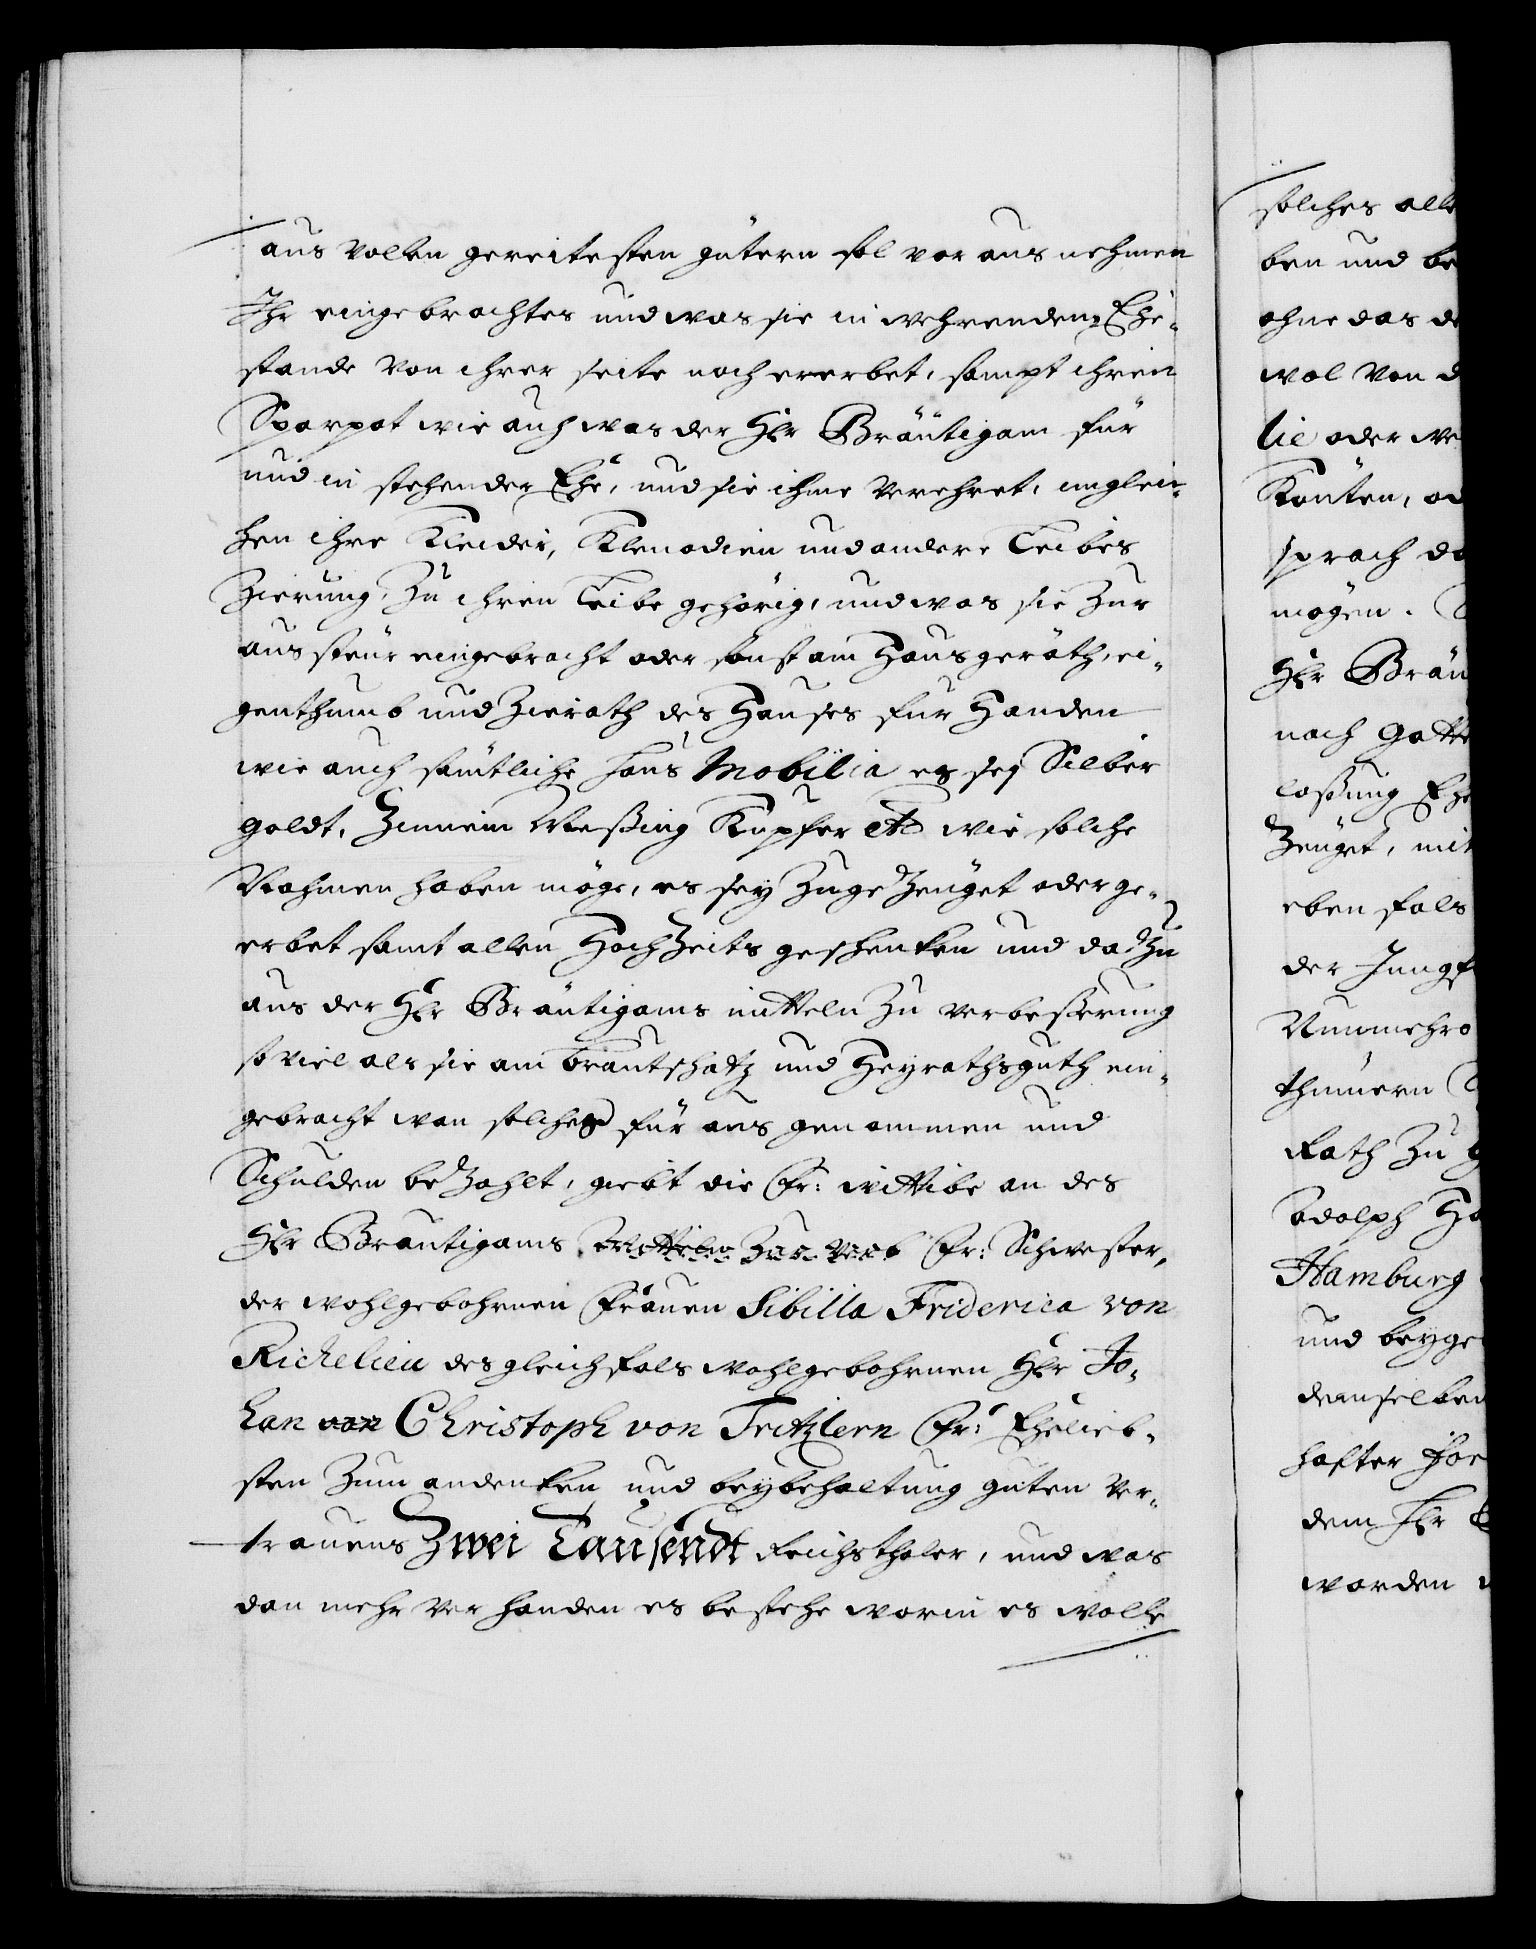 aus vollen gereitesten gütern sol vor aus nehmen
Ihr eingebrachtes und was sie in wehrendem Ehe-
stande von ihrer seite noch ererbet, sampt ihren
Sparpot wie auch was der Hr Bräutigam für
und in stehender Ehe, und sie ihme verehret, imglei-
hen ihre Kleider, Klenodien und andere Leibes
Zierung, Zu ihren Leibe gehörig, und was sie Zur
aussteur eingebracht oder sonst am Hausgeräth, ei-
genthumb und Zierath des Hauses für Handen
wie auch samtliche haus Mobilia es sey Silber
goldt, Zinnein Meßing Kupfer etc wie solche
Nahmen haben möge, es sey Zuge Zeuget oder ge-
erbet samt allen HochZeits geschenken und da Zu
aus der Hr Bräutigams mitteln Zu verbeßerung
so viel als sie am brautschatz und Heyrathsguth ein-
gebracht wan solches für aus genommen und
Schulden beZahlt, giebt die Fr: wittibe an des
Hr Bräutigams mitteln Zur verb Fr: Schwester,
der wohlgebohrnen Frauen Sibilla Friderica von
Richelieu des gleichfals wohlgebohrnen Hr Jo-
han von Christoph von Fritzlern Fr: Ehelieb-
sten Zum andenken und beybehaltung guten ver-
trauens Zwei Tausendt Reichsthaler, und was
dan mehr verhanden es bestehe worin es wolle
solches alle
ben und be
ohne das de
wol von d
lie oder we
Könten, od
sprach da
mögen.
Hr Bräu
nach gotte
laßung Ehe
Zeuget, mit
ebenfals
der Jungf
Nunmehro
thümern
Rath Zu g
Adolph Ho
Hamburg
und beyge
demselben
hafter for
dem Hr
worden